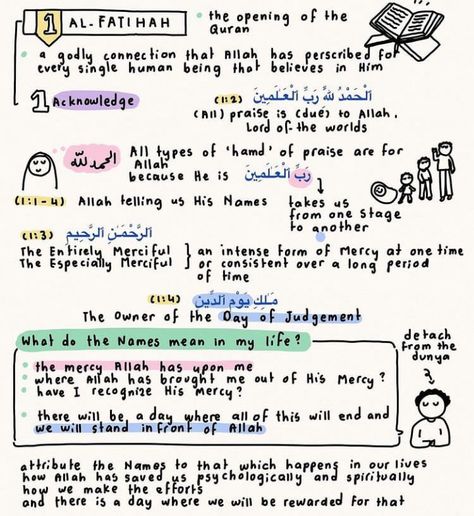 1 AL-FATIHAH
• the opening of the
Quran
• a godly connection that Allah has perscribed for
every single human being that believes in Him
1 Acknowledge
(1:2) ٱلْحَمْدُ لِلَّهِ رَبِّ ٱلْعَـٰلَمِينَ
(All) praise is (due) to Allah,
Lord of the worlds
الحمد لله
All types of 'hamd' of praise are for
Allah
because He is رَبِّ ٱلْعَـٰلَمِينَ
takes us
from one stage
to another
(1:1-4) Allah telling us His Names
(1:3) ٱلرَّحْمَـٰنِ ٱلرَّحِيمِ
The Entirely Merciful
The Especially Merciful
} an intense form of Mercy at one time
or consistent over a long period
of time
(1:4) مَـٰلِكِ يَوْمِ ٱلدِّينِ
The Owner of the Day of Judgement
What do the Names mean in my life?
• the mercy Allah has upon me
• where Allah has brought me out of His Mercy?
• have I recognize His Mercy?
• there will be a day where all of this will end and
we will stand infront of Allah
detach
from the
dunya
attribute the Names to that which happens in our lives
how Allah has saved us psychologically and spiritually
how we make the efforts
and there is a day where we will be rewarded for that